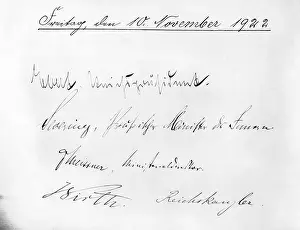 Freitag, den 10. November 1922
Ebert, Reichspräsident.
Severing, Preußischer Minister des Innern
Meissner, Ministerialdirektor.
Wirth. Reichskanzler.